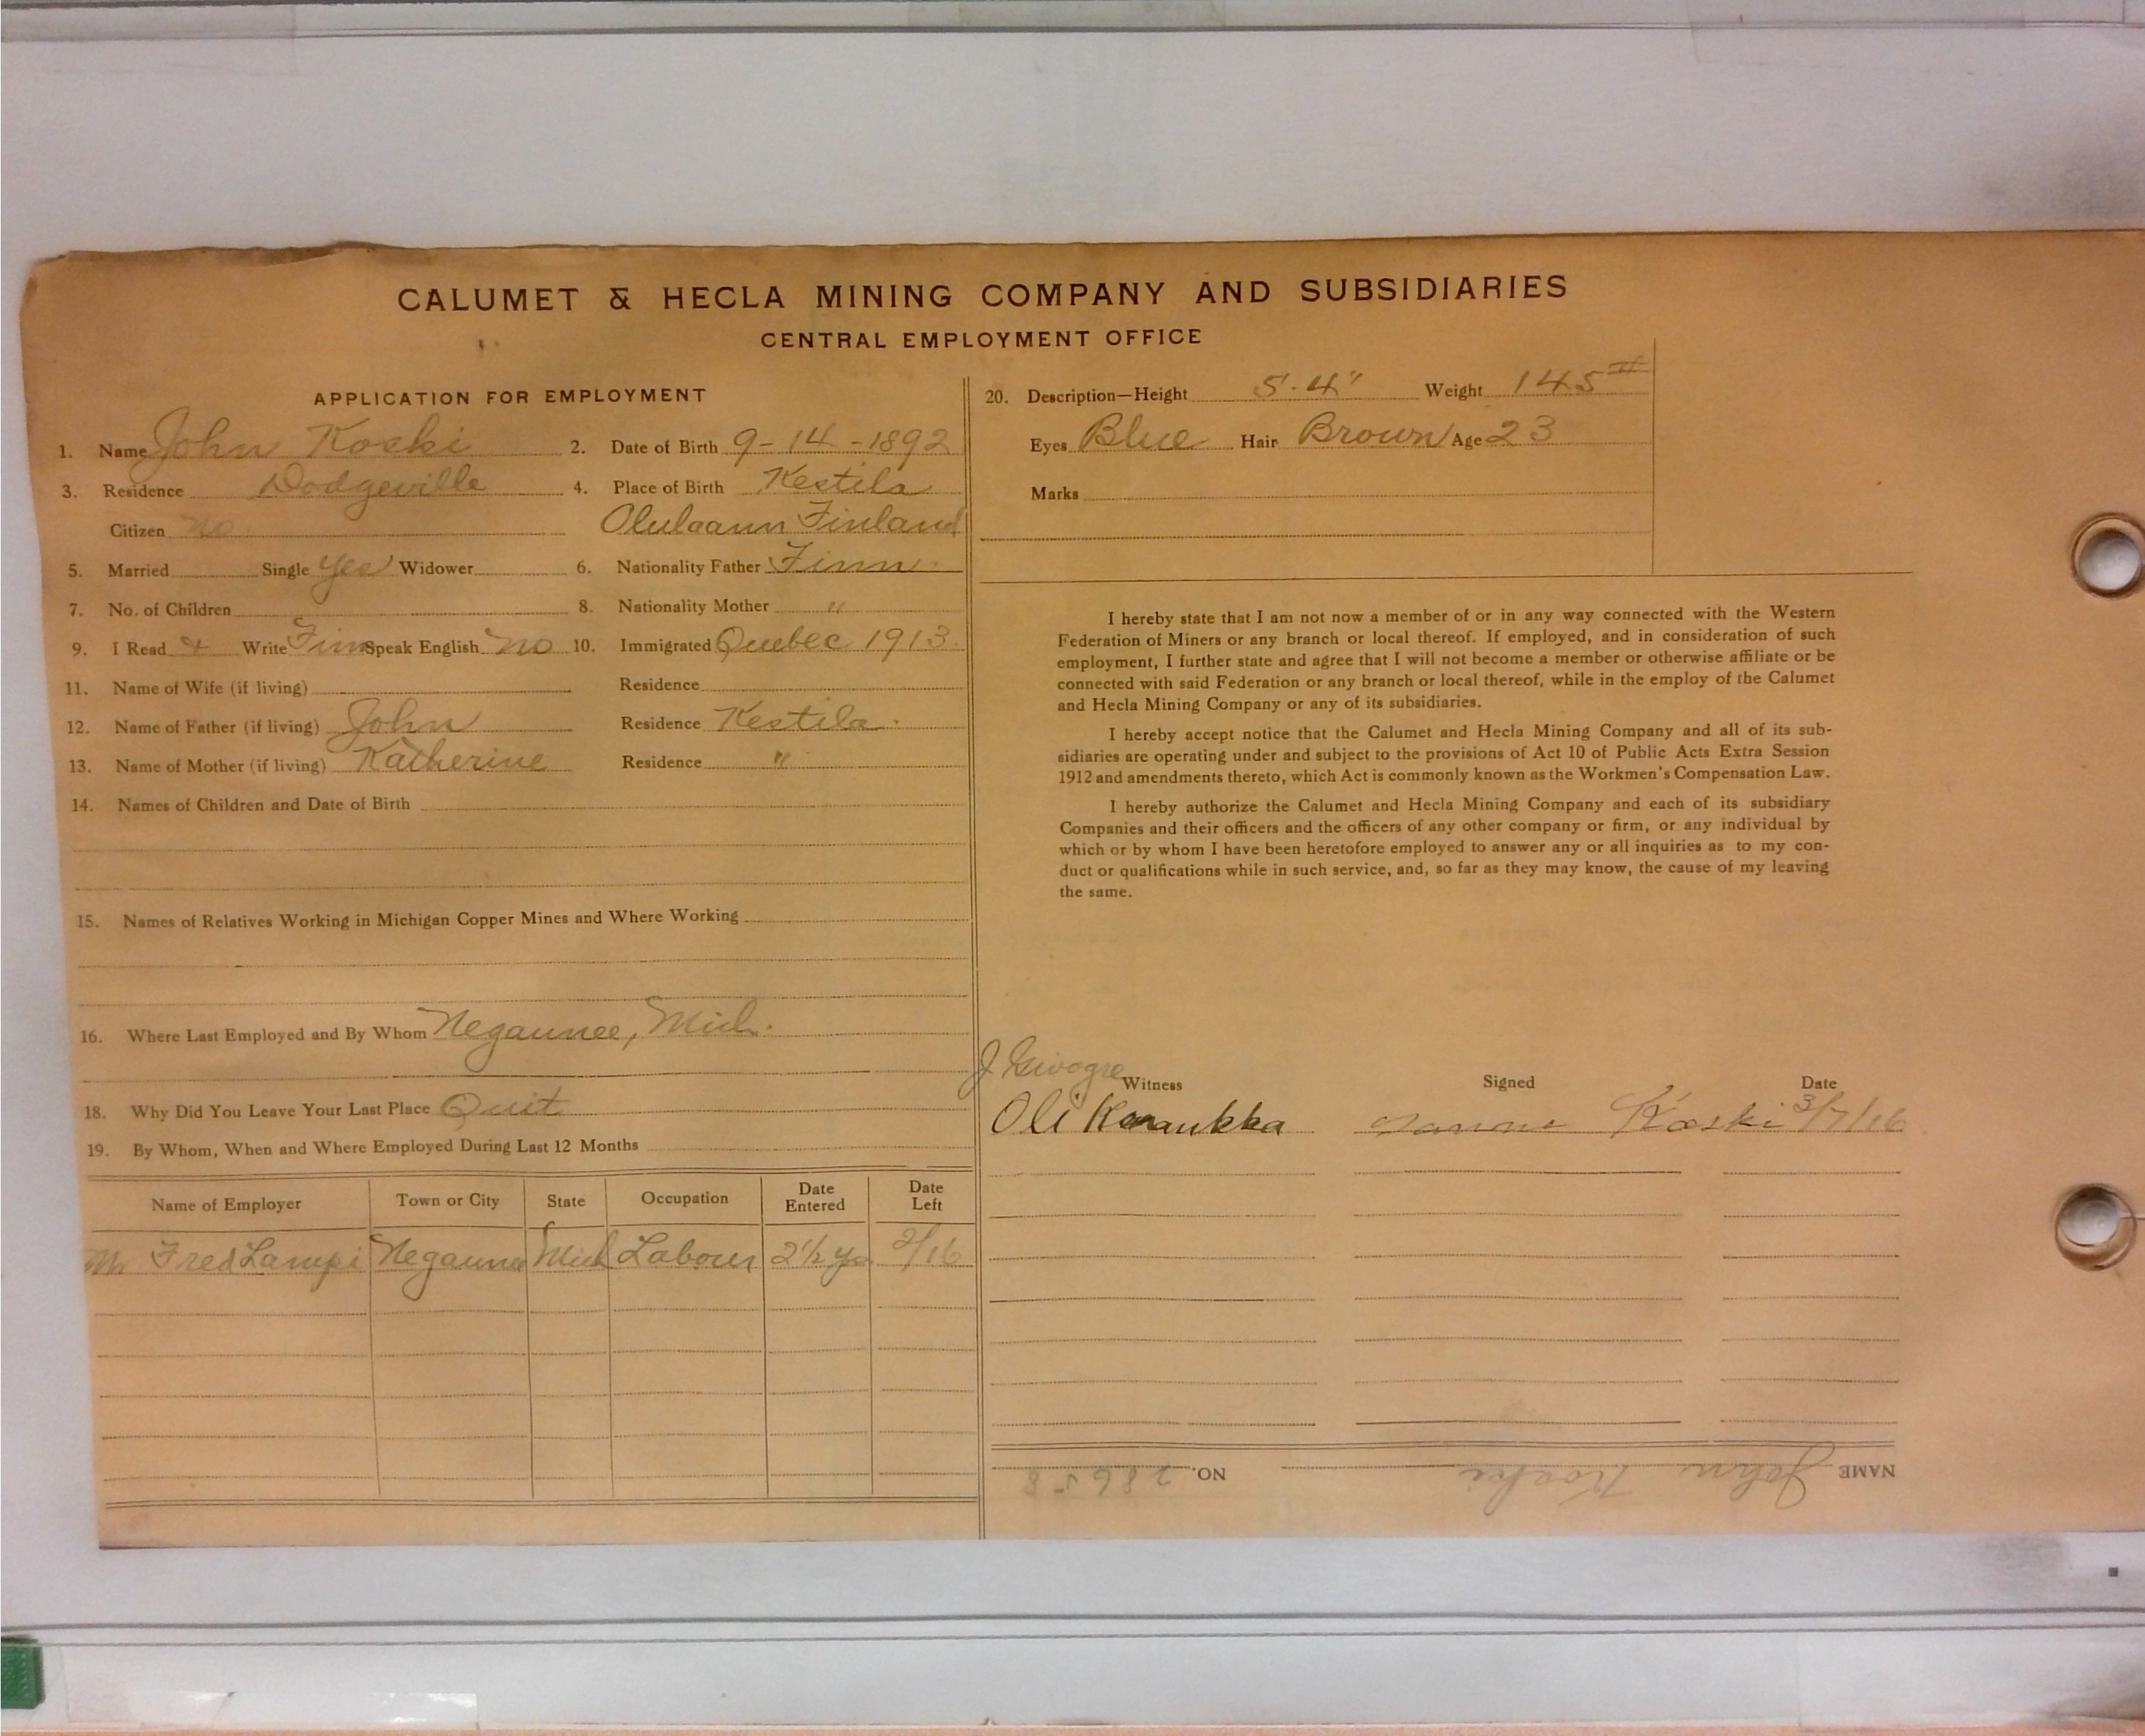 CALUMET & HECLA MINING COMPANY AND SUBSIDIARIES
CENTRAL EMPLOYMENT OFFICE
APPLICATION FOR EMPLOYMENT
1. Name John Koski 2. Date of Birth 9-14-1892
3. Residence Dodgeville 4. Place of Birth Kestila
Citizen no. Olulaann Finland
5. Married Single yes Widower 6. Nationality Father Finn.
7. No. of Children 8. Nationality Mother "
9. I Read & Write Finn Speak English no 10. Immigrated Quebec 1913.
11. Name of Wife (if living) Residence
12. Name of Father (if living) John Residence Kestila.
13. Name of Mother (if living) Katherine Residence "
14. Names of Children and Date of Birth
15. Names of Relatives Working in Michigan Copper Mines and Where Working
16. Where Last Employed and By Whom Negaunee, Mich.
18. Why Did You Leave Your Last Place Quit
19. By Whom, When and Where Employed During Last 12 Months
Name of Employer Town or City State Occupation Date Entered Date Left
Mr Fred Lampi Negaunee Mich Labour 2 1/2 yrs 2/16
20. Description—Height 5'-4" Weight 145#
Eyes Blue Hair Brown Age 23
Marks
I hereby state that I am not now a member of or in any way connected with the Western
Federation of Miners or any branch or local thereof. If employed, and in consideration of such
employment, I further state and agree that I will not become a member or otherwise affiliate or be
connected with said Federation or any branch or local thereof, while in the employ of the Calumet
and Hecla Mining Company or any of its subsidiaries.
I hereby accept notice that the Calumet and Hecla Mining Company and all of its sub-
sidiaries are operating under and subject to the provisions of Act 10 of Public Acts Extra Session
1912 and amendments thereto, which Act is commonly known as the Workmen's Compensation Law.
I hereby authorize the Calumet and Hecla Mining Company and each of its subsidiary
Companies and their officers and the officers of any other company or firm, or any individual by
which or by whom I have been heretofore employed to answer any or all inquiries as to my con-
duct or qualifications while in such service, and, so far as they may know, the cause of my leaving
the same.
J
Witness Signed Date
Oli Koski 3/7/16
NAME John Koski NO. 28658